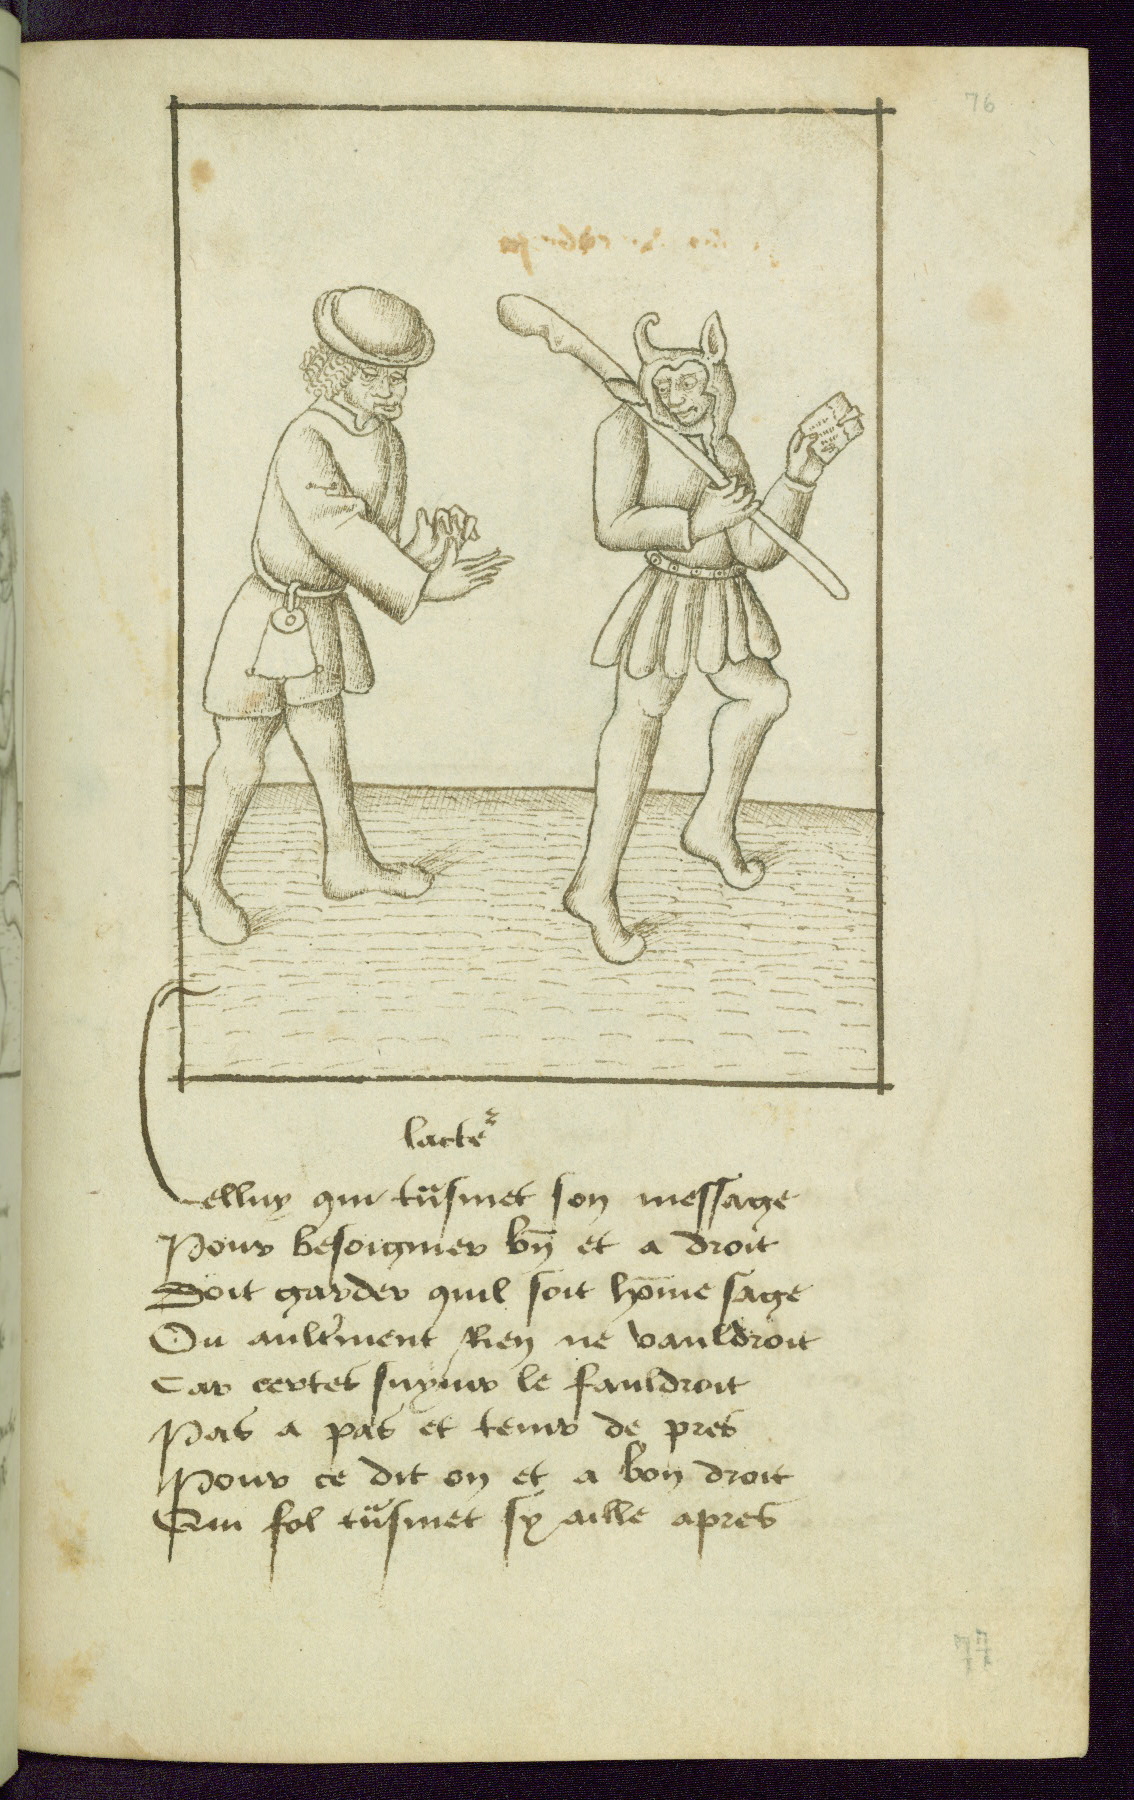 76
lacte͛
Celluy qui t͛usmet son message
Pour besoigner bn̄ et a droit
Soit garder quil soit hōme sage
Ou ault͛ment Rien ne vauldroit
Car certes suyuir le fauldroit
Pas a pas et tenir de pres
Pour ce dit on et a bon droit
Qui fol t͛usmet sy aille apres
77